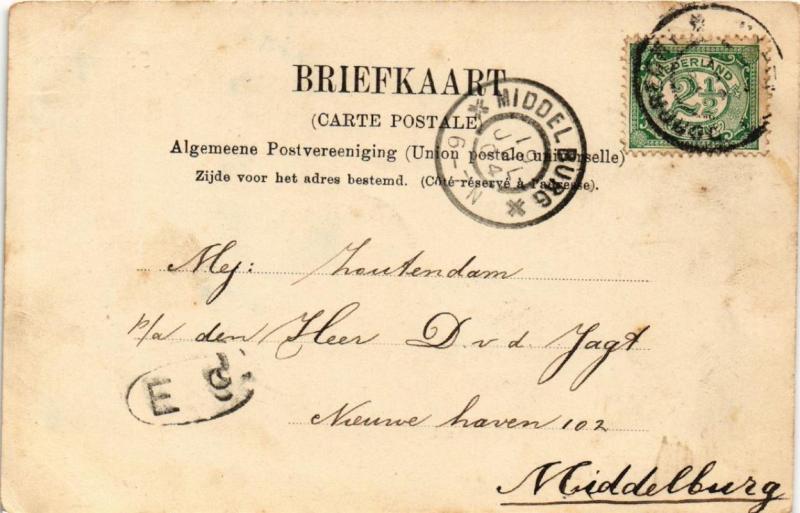 BRIEFKAART
(CARTE POSTALE)
Algemeene Postvereeniging (Union postale universelle)
Zijde voor het adres bestemd. (Côté réservé à l'adresse).
NEDERLAND
2½
MIDDELBURG
JUL
04
6-
N
Mej: Zoutendam
p/a den Heer D. v. d. Jagt
Nieuwe haven 102
Middelburg
E 8